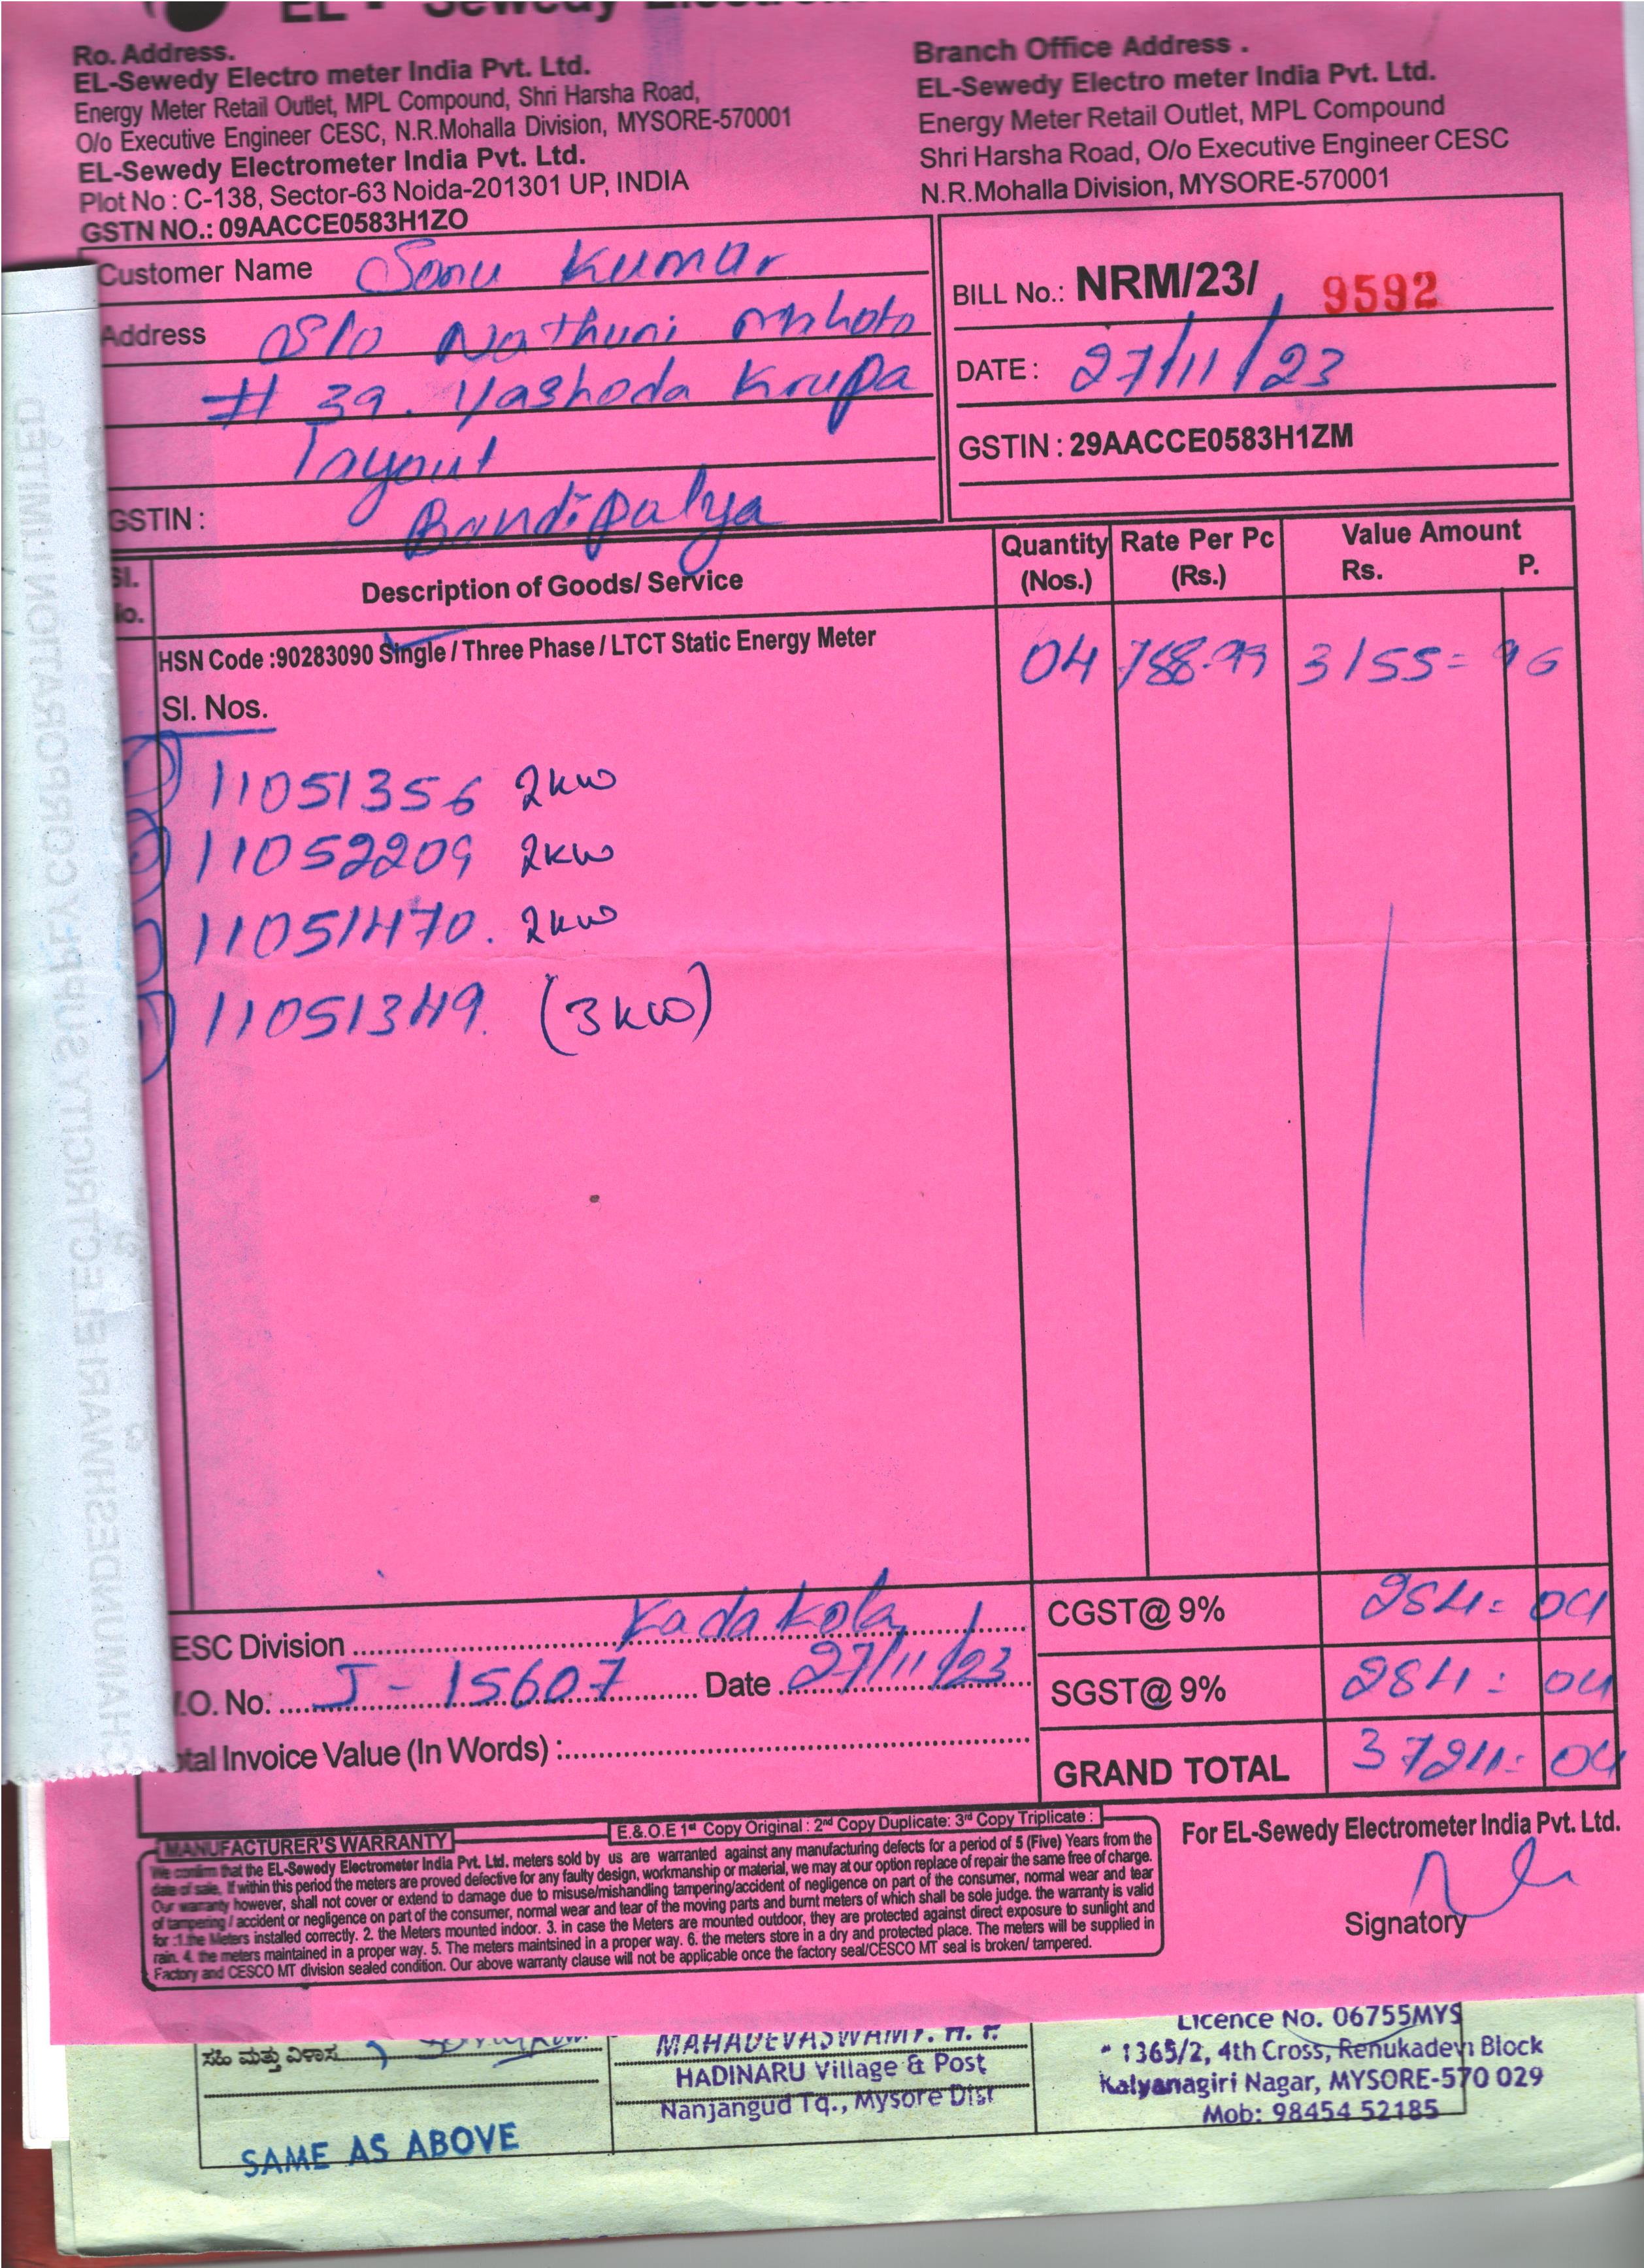 EL - Sewedy Electrom
Ro. Address.
EL-Sewedy Electro meter India Pvt. Ltd.
Energy Meter Retail Outlet, MPL Compound, Shri Harsha Road,
O/o Executive Engineer CESC, N.R.Mohalla Division, MYSORE-570001
EL-Sewedy Electrometer India Pvt. Ltd.
Plot No : C-138, Sector-63 Noida-201301 UP, INDIA
GSTN NO.: 09AACCE0583H1ZO
Branch Office Address .
EL-Sewedy Electro meter India Pvt. Ltd.
Energy Meter Retail Outlet, MPL Compound
Shri Harsha Road, O/o Executive Engineer CESC
N.R.Mohalla Division, MYSORE-570001
Customer Name Sonu Kumar
Address S/o Nathuni Mahato
# 39. Yashoda Krupa
Layout
GSTIN : Bandipalya
BILL No.: NRM/23/ 9592
DATE : 27/11/23
GSTIN : 29AACCE0583H1ZM
Sl. No. Description of Goods/ Service Quantity (Nos.) Rate Per Pc (Rs.) Value Amount Rs. P.
HSN Code :90283090 Single / Three Phase / LTCT Static Energy Meter 04 788.99 3155=96
Sl. Nos.
11051356 2kw
11052209 2kw
11051470. 2kw
11051349. (3kw)
ESC Division Kadakola
.O. No. J - 15607 Date 27/11/23
tal Invoice Value (In Words) :
CGST@ 9% 284=04
SGST@ 9% 284=04
GRAND TOTAL 3724=04
E.&.O.E 1st Copy Original : 2nd Copy Duplicate: 3rd Copy Triplicate :
MANUFACTURER'S WARRANTY
We confirm that the EL-Sewedy Electrometer India Pvt. Ltd. meters sold by us are warranted against any manufacturing defects for a period of 5 (Five) Years from the
date of sale, If within this period the meters are proved defective for any faulty design, workmanship or material, we may at our option replace of repair the same free of charge.
Our warranty however, shall not cover or extend to damage due to misuse/mishandling tampering/accident of negligence on part of the consumer, normal wear and tear
of tampering / accident or negligence on part of the consumer, normal wear and tear of the moving parts and burnt meters of which shall be sole judge. the warranty is valid
for :1.the Meters installed correctly. 2. the Meters mounted indoor. 3. in case the Meters are mounted outdoor, they are protected against direct exposure to sunlight and
rain. 4. the meters maintained in a proper way. 5. The meters maintsined in a proper way. 6. the meters store in a dry and protected place. The meters will be supplied in
Factory and CESCO MT division sealed condition. Our above warranty clause will not be applicable once the factory seal/CESCO MT seal is broken/ tampered.
For EL-Sewedy Electrometer India Pvt. Ltd.
Signatory
CHAMUNDESHWARI ELECTRICITY SUPPLY CORPORATION LIMITED
ಸಹಿ ಮತ್ತು ವಿಳಾಸ
SAME AS ABOVE
MAHADEVASWAMY. H. P.
HADINARU Village & Post
Nanjangud Tq., Mysore Dist
Licence No. 06755MYS
1365/2, 4th Cross, Renukadevi Block
Kalyanagiri Nagar, MYSORE-570 029
Mob: 98454 52185